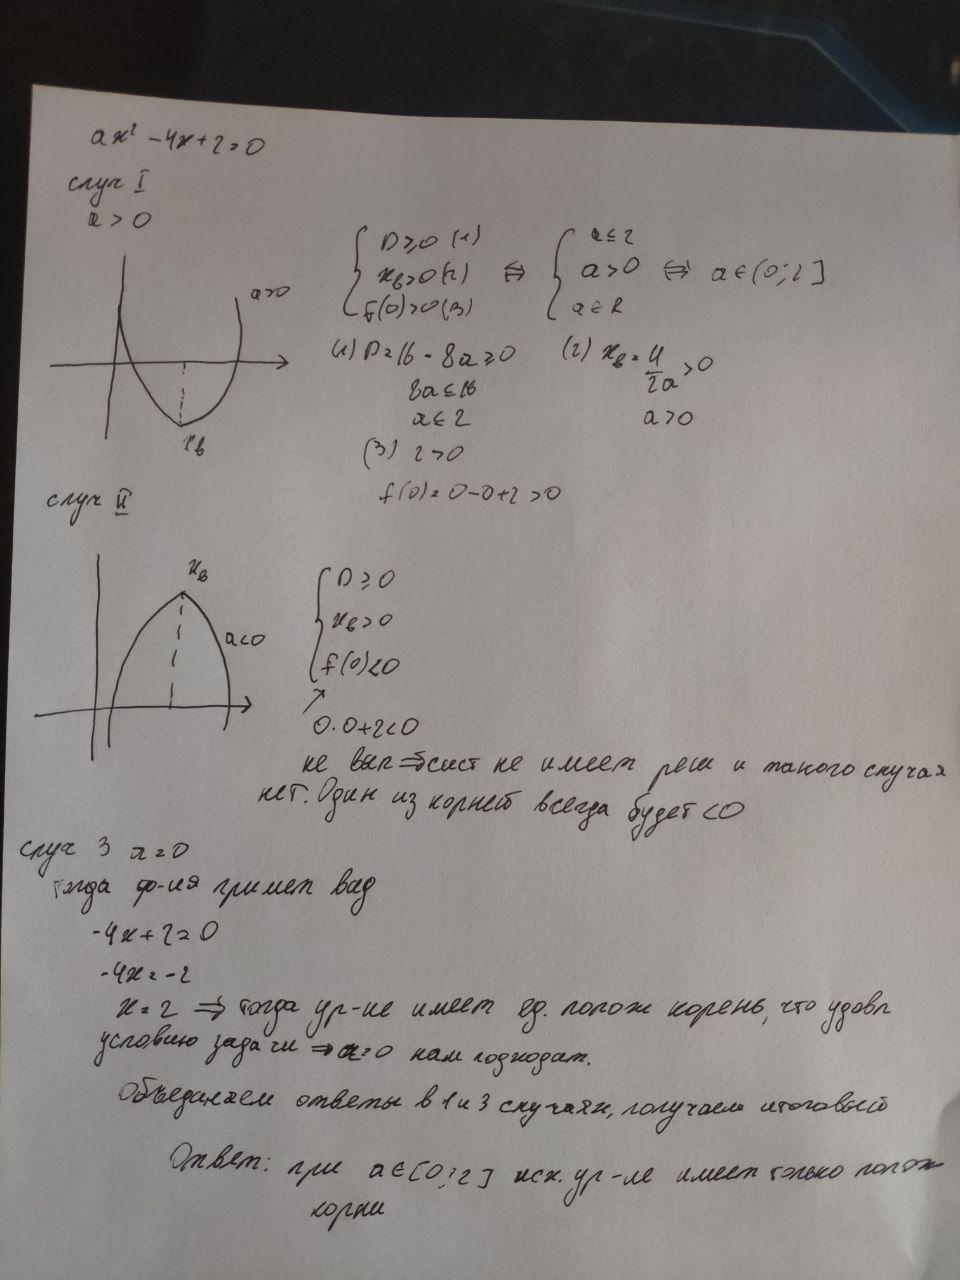 ax² - 4x + 2 = 0
случ I
a > 0
a>0
xв
{ D ≥ 0 (1)
xв > 0 (2)
f(0) > 0 (3)
⇔
{ a ≤ 2
a > 0
a ∈ R
⇔ a ∈ (0; 2]
(1) D = 16 - 8a ≥ 0
8a ≤ 16
a ≤ 2
(2) xв = 4/2a > 0
a > 0
(3) 2 > 0
f(0) = 0 - 0 + 2 > 0
случ II
xв
a<0
{ D ≥ 0
xв > 0
f(0) < 0
↗
0 · 0 + 2 < 0
не вып ⇒ сист не имеет реш и такого случая
нет. Один из корней всегда будет < 0
случ 3 a = 0
тогда ф-ия примет вид
-4x + 2 = 0
-4x = -2
x = 2 ⇒ тогда ур-ие имеет ед. полож корень, что удовл
условию задачи ⇒ a = 0 нам подходит.
Объединяем ответы в 1 и 3 случаях, получаем итоговый
Ответ: при a ∈ [0; 2] исх. ур-ие имеет только полож
корни